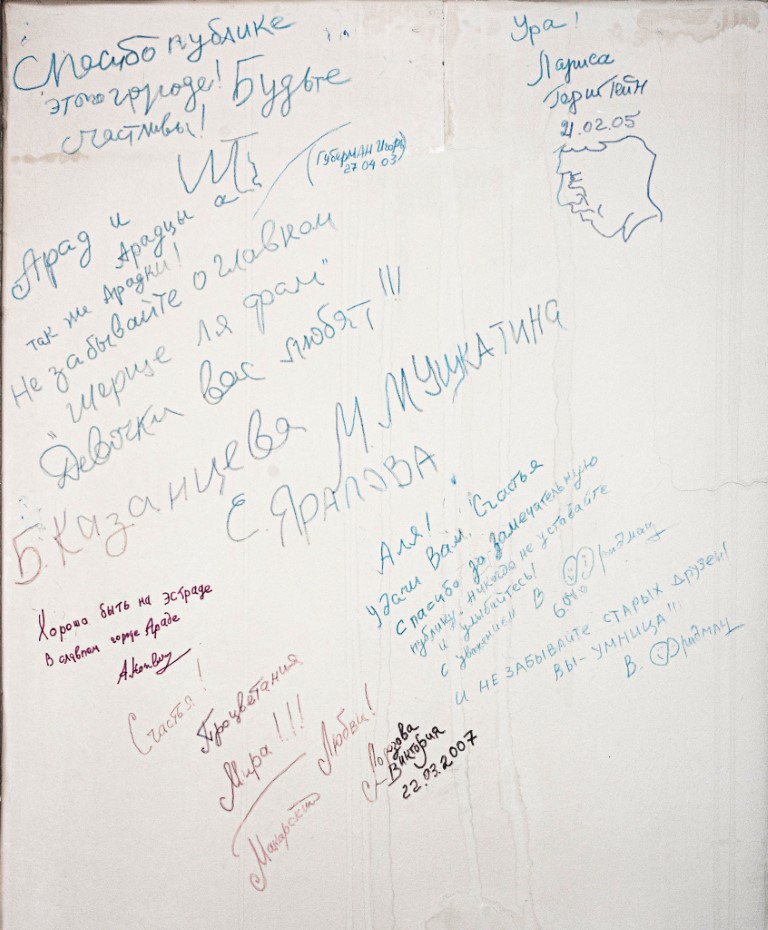 Спасибо публике
этого города! Будьте
счастливы!
(Губерман Игорь
27.04.03)
Ура!
Лариса
Герштейн
21.02.05
Арад и
Арадцы а
так же Арадки!
Не забывайте о главном
"Шерше ля фам"
Девочки вас любят!!!
Б. Казанцева М. МУШКАТИНА
Е. ЯРАПОВА
Аля!
Удачи Вам. Счастья
Спасибо за замечательную
публику. Никогда не уставайте
и улыбайтесь!
с уважением В. Фридман
И НЕ ЗАБЫВАЙТЕ СТАРЫХ ДРУЗЕЙ!
ВЫ - УМНИЦА!!!
В. Фридман
Хорошо быть на эстраде
В славном городе Араде
Счастья!
Процветания
Мира!!! Любви!
Виктория
22.03.2007